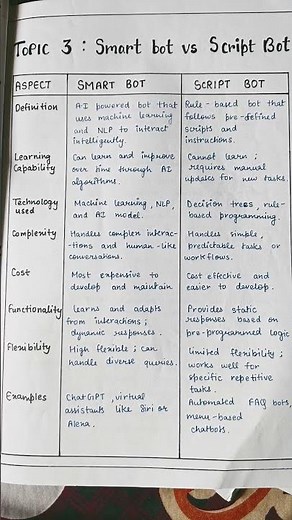 TOPIC 3 : Smart bot vs Script Bot
ASPECT SMART BOT SCRIPT BOT
Definition
AI powered bot that
uses machine learning
and NLP to interact
intelligently.
Rule-based bot that
follows pre-defined
scripts and
instructions.
Learning
Capability
Can learn and improve
over time through AI
algorithms.
Cannot learn ;
requires manual
updates for new tasks.
Technology
used
Machine learning, NLP,
and AI model.
Decision trees, rule-
based programming.
Complexity
Handles complex interac-
-tions and human-like
conversations.
Handles simple,
predictable tasks or
workflows.
Cost
Most expensive to
develop and maintain
Cost effective and
easier to develop.
Functionality
Learns and adapts
from interactions ;
dynamic responses.
Provides static
responses based on
pre-programmed logic
Flexibility
High flexible ; can
handle diverse queries.
limited flexibility ;
works well for
specific repetitive
tasks.
Examples
ChatGPT, virtual
assistants like Siri or
Alexa.
Automated FAQ bots,
menu-based
chatbots.